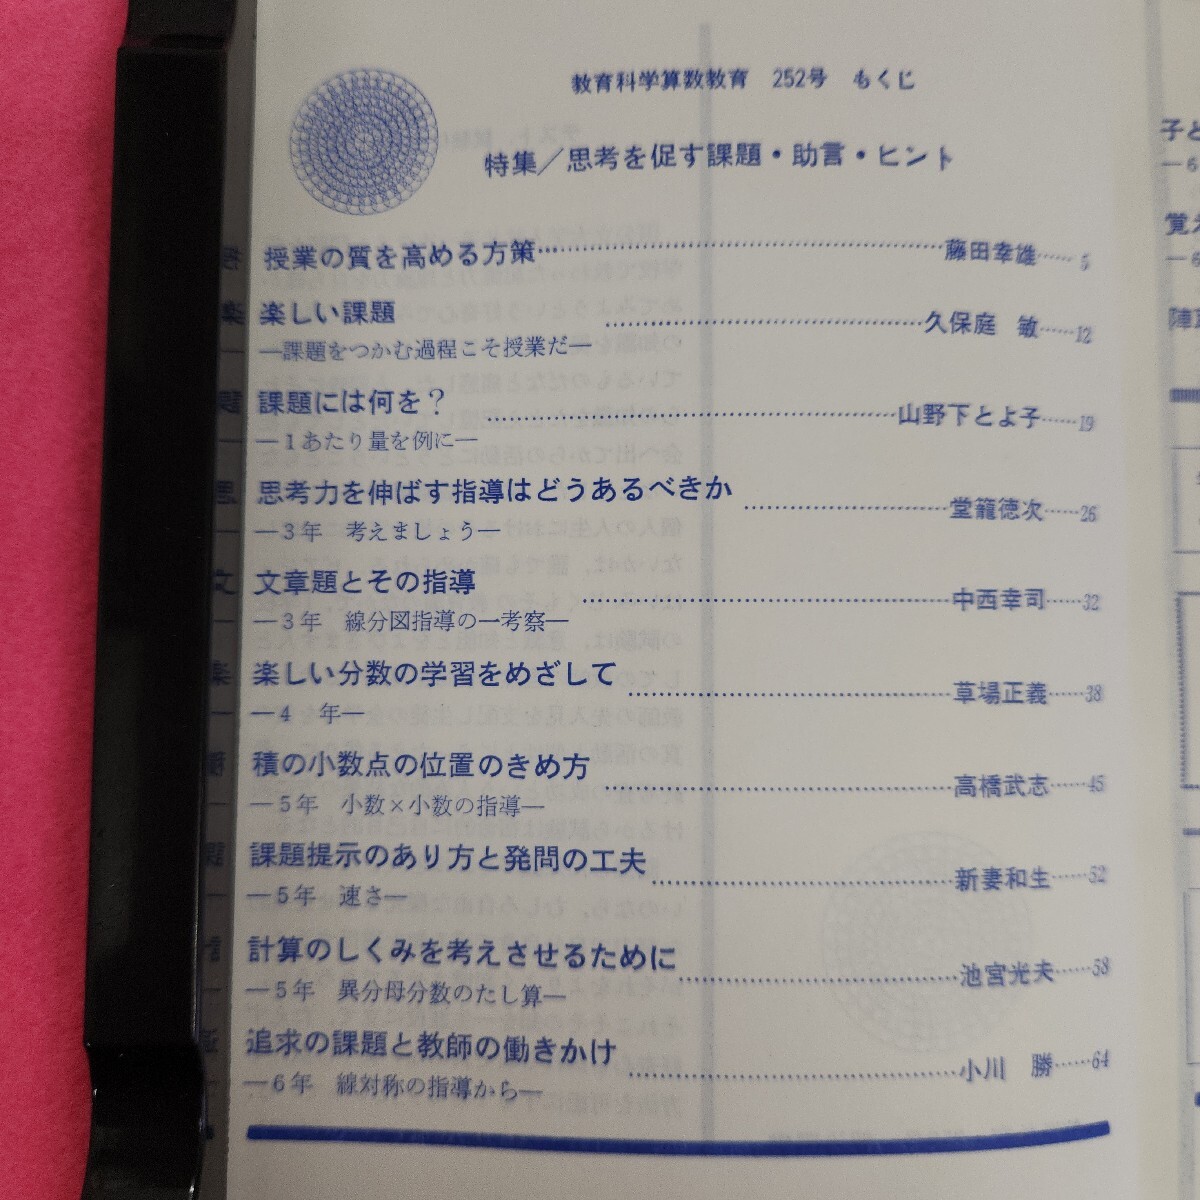 教育科学算数教育　252号　もくじ
特集／思考を促す課題・助言・ヒント
授業の質を高める方策……藤田幸雄……5
楽しい課題……久保庭　敏……12
―課題をつかむ過程こそ授業だ―
課題には何を？……山野下とよ子……19
―1あたり量を例に―
思考力を伸ばす指導はどうあるべきか……堂籠徳次……26
―3年　考えましょう―
文章題とその指導……中西幸司……32
―3年　線分図指導の一考察―
楽しい分数の学習をめざして……草場正義……38
―4　年―
積の小数点の位置のきめ方……高橋武志……45
―5年　小数×小数の指導―
課題提示のあり方と発問の工夫……新妻和生……52
―5年　速さ―
計算のしくみを考えさせるために……池宮光夫……58
―5年　異分母分数のたし算―
追求の課題と教師の働きかけ……小川　勝……64
―6年　線対称の指導から―